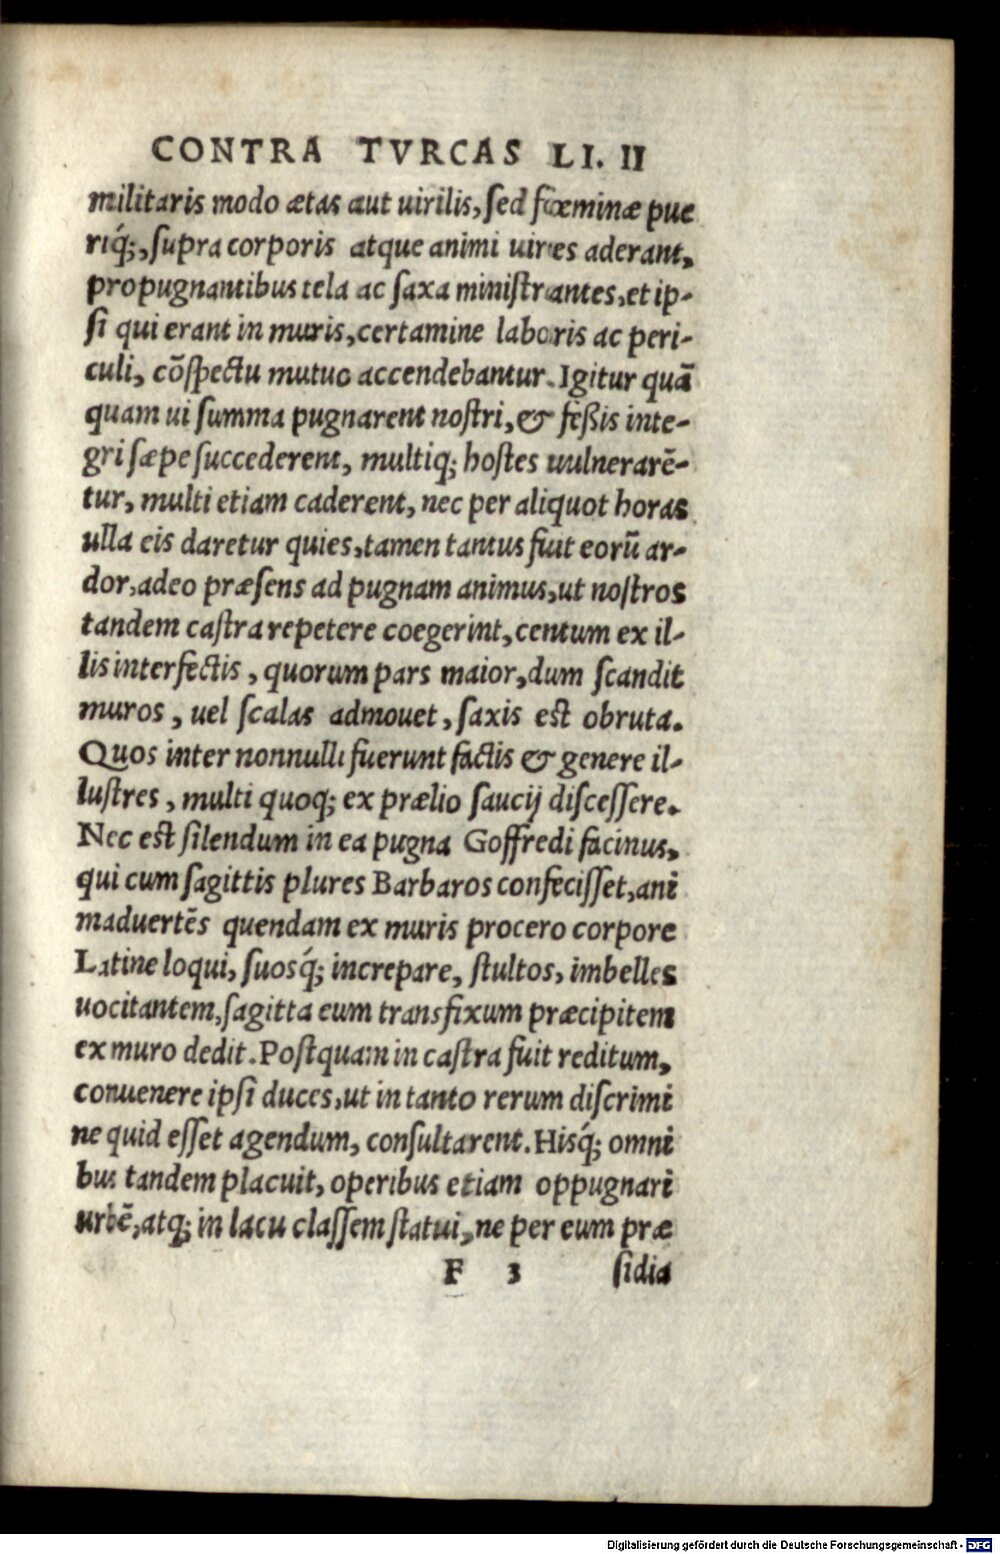 CONTRA TVRCAS LI. II
militaris modo ætas aut uirilis, sed fœminæ pue
riq́;, supra corporis atque animi uires aderant,
propugnantibus tela ac saxa ministrantes, et ip-
si qui erant in muris, certamine laboris ac peri-
culi, cõspectu mutuo accendebantur. Igitur quã
quam ui summa pugnarent nostri, & feßis inte-
gri sæpe succederent, multiq; hostes uulnerarẽ-
tur, multi etiam caderent, nec per aliquot horas
ulla eis daretur quies, tamen tantus fuit eorũ ar-
dor, adeo præsens ad pugnam animus, ut nostros
tandem castra repetere coegerint, centum ex il-
lis interfectis, quorum pars maior, dum scandit
muros, uel scalas admouet, saxis est obruta.
Quos inter nonnulli fuerunt factis & genere il-
lustres, multi quoq; ex prælio saucij discessere.
Nec est silendum in ea pugna Goffredi facinus,
qui cum sagittis plures Barbaros confecisset, ani
maduertẽs quendam ex muris procero corpore
Latine loqui, suosq́; increpare, stultos, imbelles
uocitantem, sagitta eum transfixum præcipitem
ex muro dedit. Postquam in castra fuit reditum,
conuenere ipsi duces, ut in tanto rerum discrimi
ne quid esset agendum, consultarent. Hisq́; omni
bus tandem placuit, operibus etiam oppugnari
urbẽ, atq; in lacu classem statui, ne per eum præ
F 3 sidia
Digitalisierung gefördert durch die Deutsche Forschungsgemeinschaft - DFG